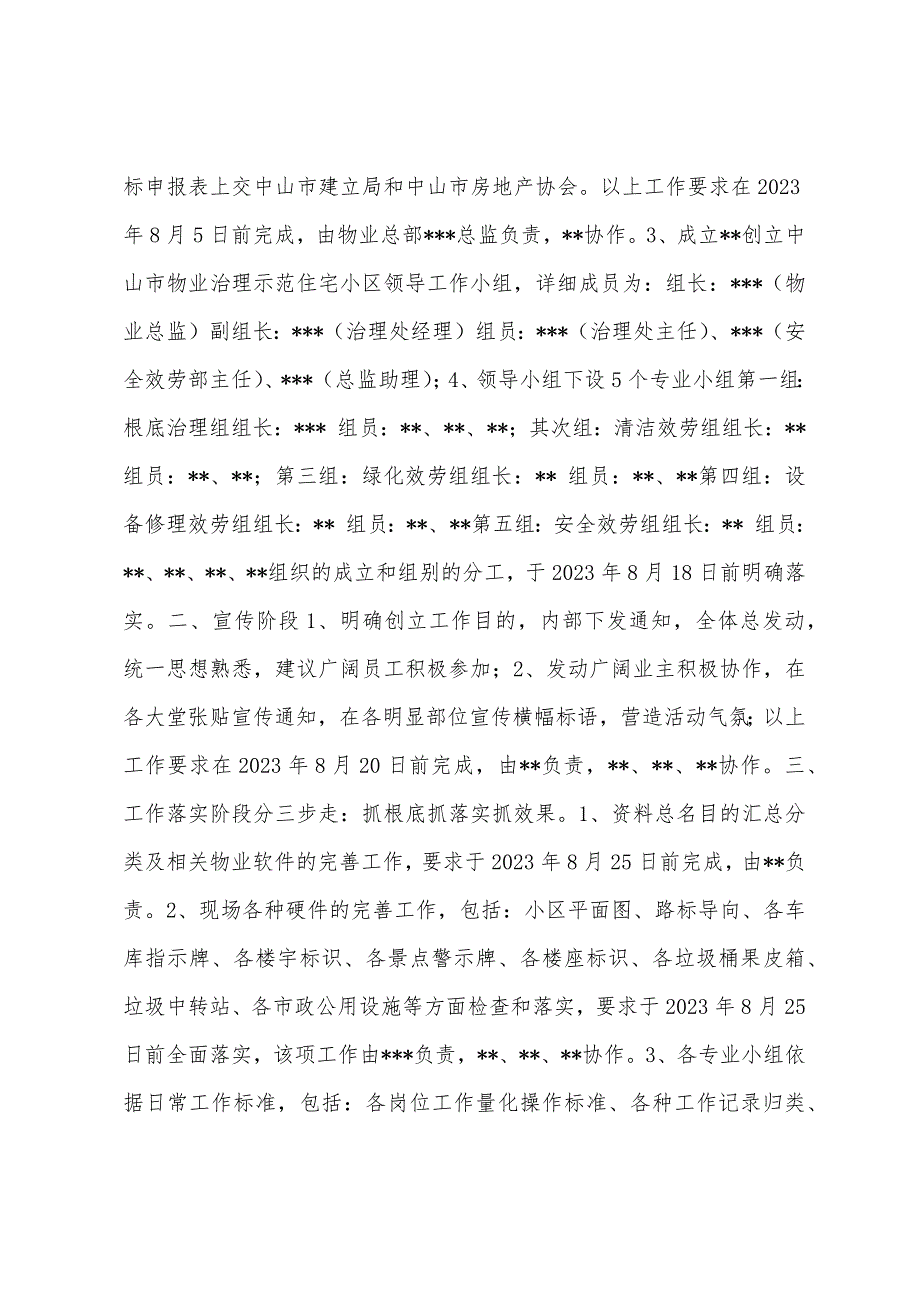 标申报表上交中山市建立局和中山市房地产协会。以上工作要求在 2023
年 8 月 5 日前完成，由物业总部***总监负责，**协作。3、成立**创立中
山市物业治理示范住宅小区领导工作小组，详细成员为：组长：***（物
业总监）副组长：***（治理处经理）组员：***（治理处主任）、***（安
全效劳部主任）、***（总监助理）；4、领导小组下设 5 个专业小组第一组：
根底治理组组长：*** 组员：**、**、**；其次组：清洁效劳组组长：**
组员：**、**；第三组：绿化效劳组组长：** 组员：**、**第四组：设
备修理效劳组组长：** 组员：**、**第五组：安全效劳组组长：** 组员：
**、**、**、**组织的成立和组别的分工，于 2023 年 8 月 18 日前明确落
实。二、宣传阶段 1、明确创立工作目的，内部下发通知，全体总发动，
统一思想熟悉，建议广阔员工积极参加；2、发动广阔业主积极协作，在
各大堂张贴宣传通知，在各明显部位宣传横幅标语，营造活动气氛；以上
工作要求在 2023 年 8 月 20 日前完成，由**负责，**、**、**协作。三、
工作落实阶段分三步走：抓根底抓落实抓效果。1、资料总名目的汇总分
类及相关物业软件的完善工作，要求于 2023 年 8 月 25 日前完成，由**负
责。2、现场各种硬件的完善工作，包括：小区平面图、路标导向、各车
库指示牌、各楼宇标识、各景点警示牌、各楼座标识、各垃圾桶果皮箱、
垃圾中转站、各市政公用设施等方面检查和落实，要求于 2023 年 8 月 25
日前全面落实，该项工作由***负责，**、**、**协作。3、各专业小组依
据日常工作标准，包括：各岗位工作量化操作标准、各种工作记录归类、